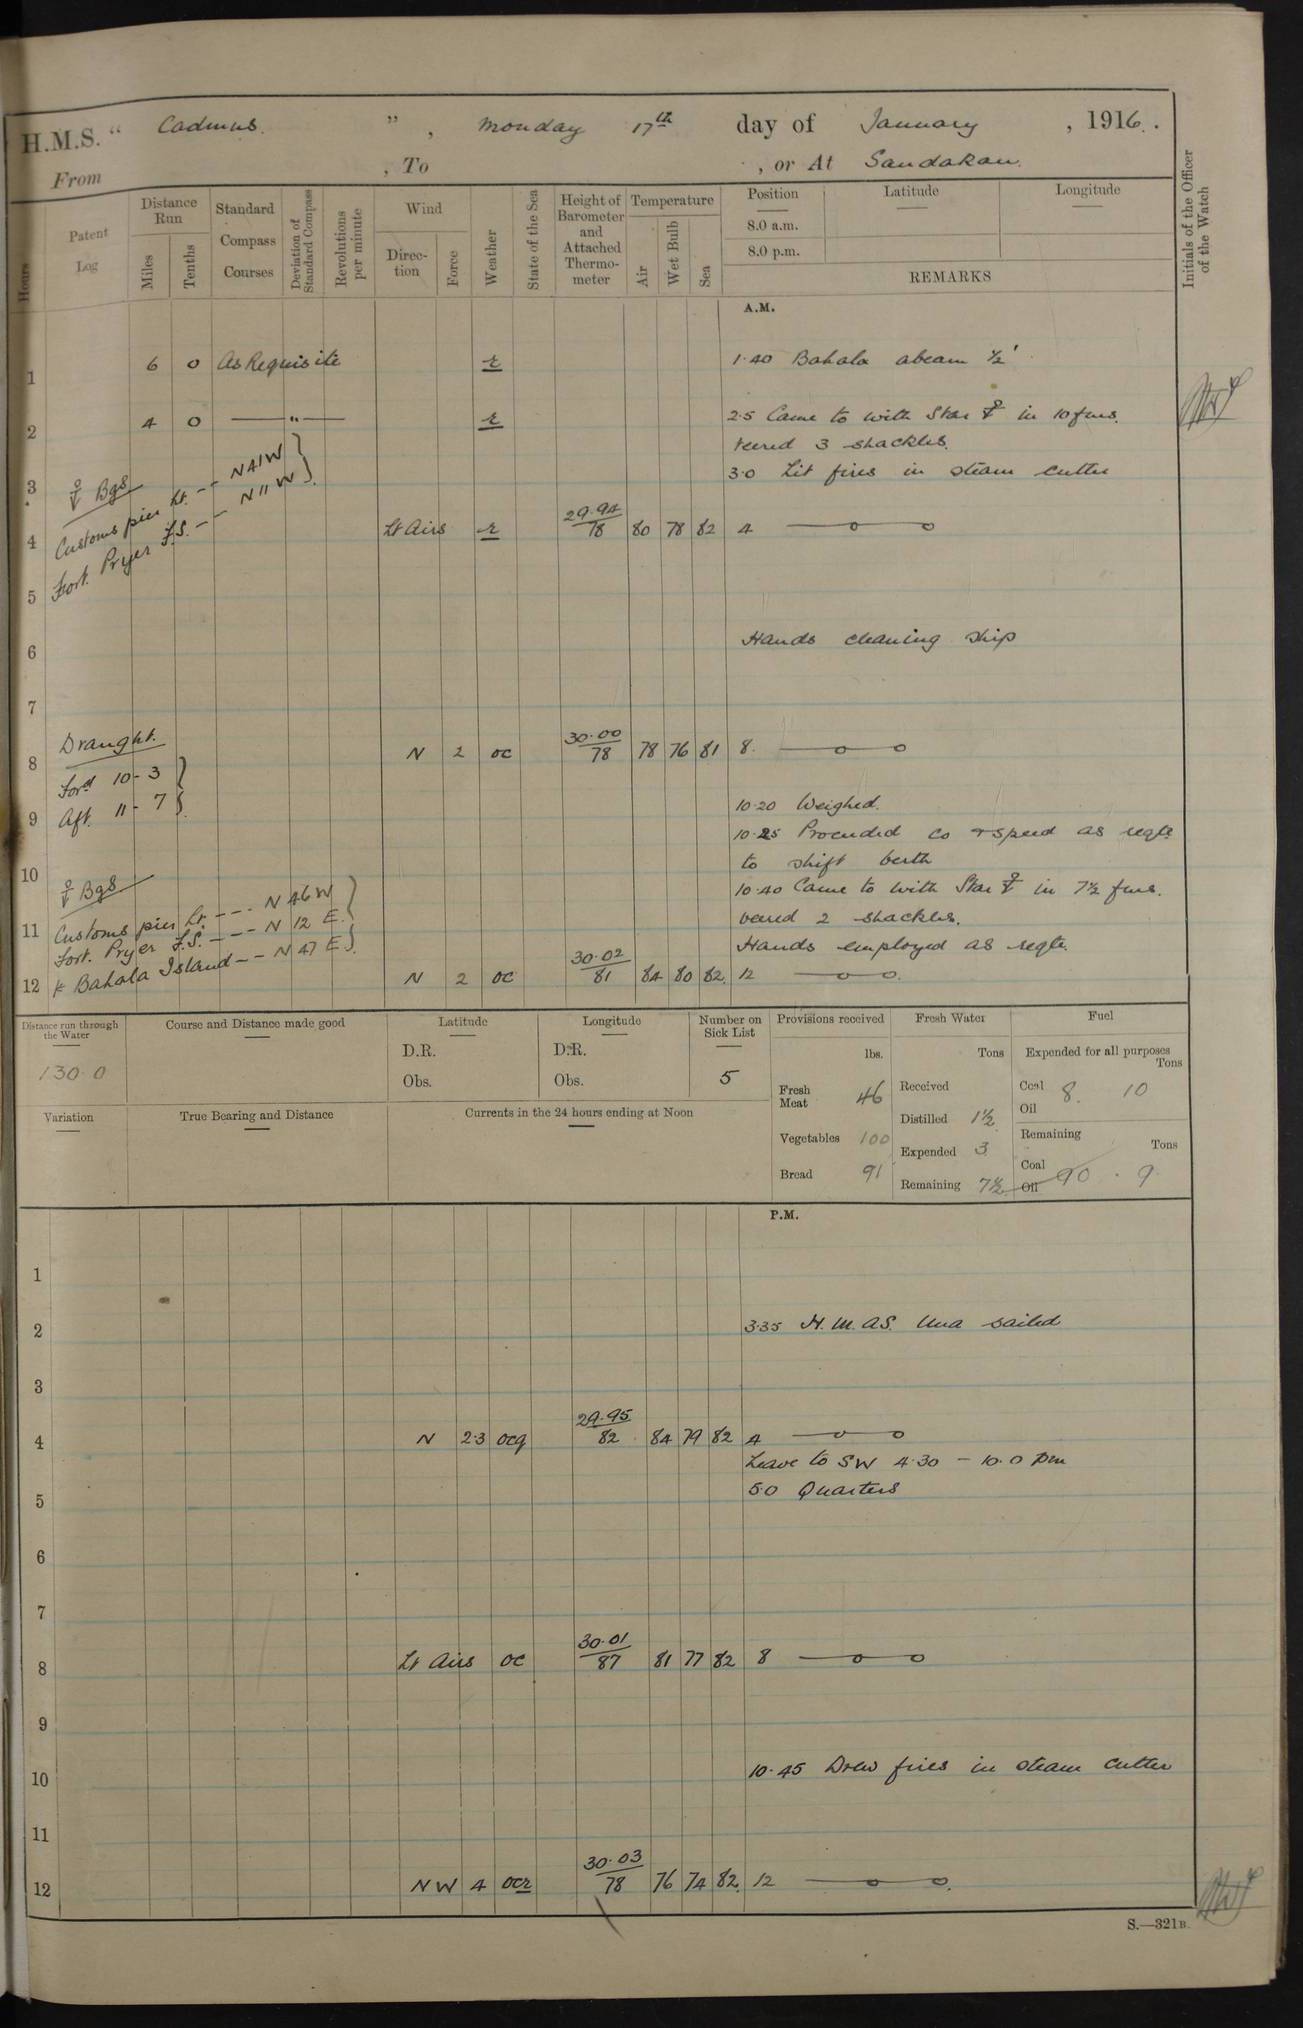 H.M.S. " Cadmus. ", Monday 17th day of January, 1916.
From , To , or At Sandakan.
Hours
Patent Log
Distance Run
Miles
Tenths
Standard Compass Courses
Deviation of Standard Compass
Revolutions per minute
Wind
Direction
Force
Weather
State of the Sea
Height of Barometer and Attached Thermometer
Temperature
Air
Wet Bulb
Sea
Position
Latitude
Longitude
8.0 a.m.
8.0 p.m.
REMARKS
Initials of the Officer of the Watch
A.M.
1 6 0 As Requisite r 1.40 Bahala abeam ½'
2 4 0 — " — r 2.5 Came to with Star ⚓ in 10 fms.
veered 3 shackles.
3 ⚓ Bgs 3.0 Lit fires in steam cutter
Customs pier Lt. -- N41W
Fort. Pryer F.S. -- N11W
4 Lt Airs r 29.94 78 80 78 82 4
5
6 Hands cleaning ship
7
Draught.
8 N 2 oc 30.00 78 78 76 81 8.
Ford 10-3
9 Aft. 11-7
10.20 Weighed.
10.25 Proceeded co & speed as reqte
10 to shift berth
⚓ Bgs
10.40 Came to with Star ⚓ in 7½ fms.
11 Customs pier Lt. --- N 46 W
veered 2 shackles.
Fort. Pryer F.S. --- N 12 E.
Hands employed as reqte.
Bahala Island -- N 47 E.
12 N 2 oc 30.02 81 84 80 82. 12
Distance run through the Water
130.0
Course and Distance made good
Latitude
D.R.
Obs.
Longitude
D.R.
Obs.
Number on Sick List
5
Provisions received
lbs.
Fresh Meat 46
Vegetables 100
Bread 91
Fresh Water
Tons
Received
Distilled 1½
Expended 3
Remaining 7½
Fuel
Expended for all purposes
Tons
Coal 8. 10
Oil
Remaining
Tons
Coal 90 . 9
Oil
Variation
True Bearing and Distance
Currents in the 24 hours ending at Noon
P.M.
1
2 3.35 H.M.A.S. Una sailed
3
4 N 2.3 ocq 29.95 82 84 79 82 4
Leave to SW 4.30 – 10.0 pm
5 5.0 Quarters
6
7
8 Lt Airs oc 30.01 87 81 77 82 8
9
10 10.45 Drew fires in steam cutter
11
12 NW 4 ocr 30.03 78 76 74 82. 12
S.—321B.